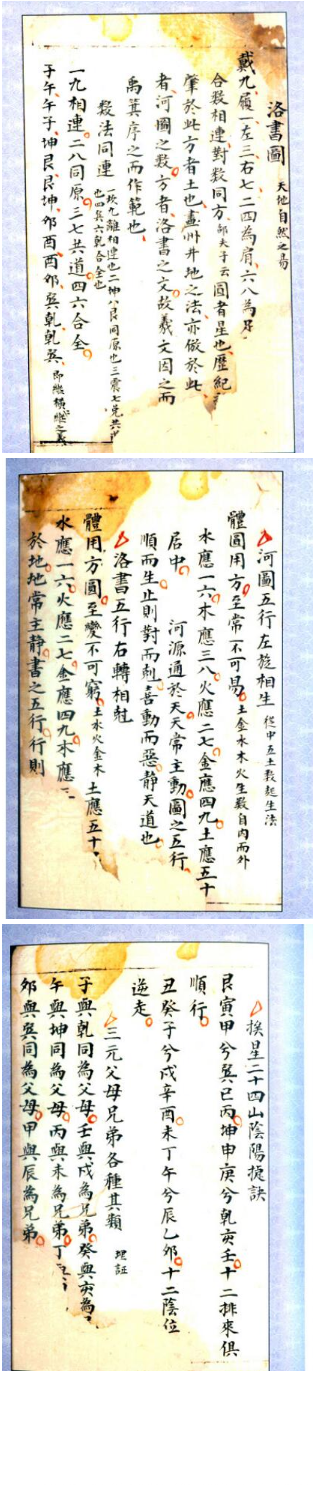 洛書圖 天地自然之易
戴九履一左三右七二四為肩六八為足
合數相連對數同方邵夫子云圓者星也歷紀
肇於此方者土也畫州井地之法亦倣於此
者河圖之數方者洛書之文故羲文因之而
禹箕序之而作範也
數法同連 一坎九離相連也二坤八艮同原也三震七兌共
也四巽六乾合全也
一九相連二八同原三七共道四六合全
子午午子坤艮艮坤卯酉酉卯巽乾乾巽 即縱橫維之義
河圖五行左旋相生 從中五土數起生法
體圓用方至常不可易 土金水木火生數自內而外
水應一六木應三八火應二七金應四九土應五十
居中 河源通於天天常主動圖之五行
順而生止則對而剋喜動而惡靜天道也
洛書五行右轉相尅
體用方圓至變不可窮 土水火金木 土應五十
水應一六火應二七金應四九木應三
於地地常主靜書之五行行則
挨星二十四山陰陽捷訣
艮寅甲兮巽巳丙坤申庚兮乾亥壬十二排來俱
順行
丑癸子兮戌辛酉未丁午兮辰乙卯十二陰位
逆走
三元父母兄弟各種其類
子與乾同為父母壬與戌為兄弟癸與亥為
午與坤同為父母丙與未為兄弟丁
卯與巽同為父母甲與辰為兄弟